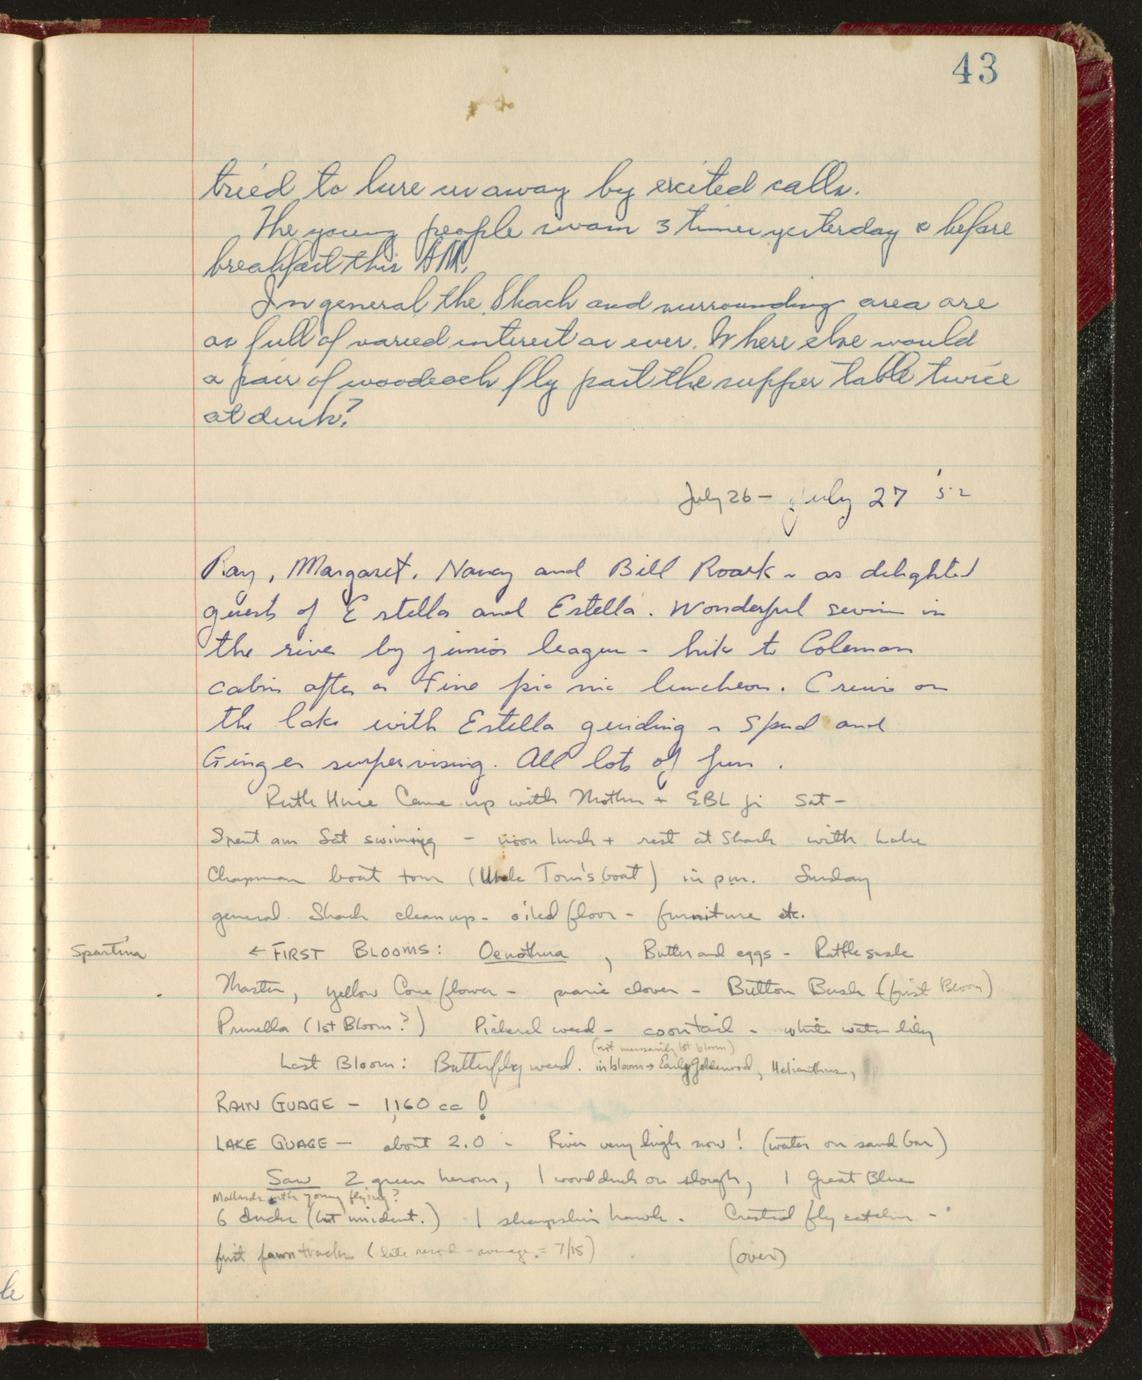 43
tried to lure us away by excited calls.
The young people swam 3 times yesterday & before
breakfast this AM.
In general the Shack and surrounding area are
as full of varied interest as ever. Where else would
a pair of woodcock fly past the supper table twice
at dusk?
July 26 - July 27 '52
Ray, Margaret, Nancy and Bill Roark - as delighted
guests of Estella and Estella. Wonderful swim in
the river by junior league - hike to Coleman
cabin after a fine pic nic luncheon. Cruise on
the lake with Estella guiding - Spud and
Ginger supervising. All lots of fun.
Ruth Hine Came up with Mother + EBL jr Sat -
Spent am Sat swimming - noon lunch + rest at Shack with Lake
Chapman boat tour (Uncle Tom's boat) in pm. Sunday
general Shack clean up - oiled floor - furniture etc.
Spartina
← FIRST BLOOMS: Oenothera, Butter and eggs - Rattlesnake
Master, yellow Cone flower - prairie clover - Button Bush (first Bloom)
Prunella (1st Bloom?) Pickerel weed - coontail - white water lily
(not necessarily 1st bloom)
Last Bloom: Butterfly weed. in bloom → Early Goldenrod, Helianthus,
RAIN GUAGE - 1,160 cc!
LAKE GUAGE - about 2.0 - River very high now! (water on sand bar)
Saw 2 green herons, 1 wood duck on slough, 1 Great Blue
Mallards with young flying?
6 ducks (but unident.) 1 sharpshin hawk. Crested fly catcher -
first fawn tracks (late record - average = 7/15)
(over)